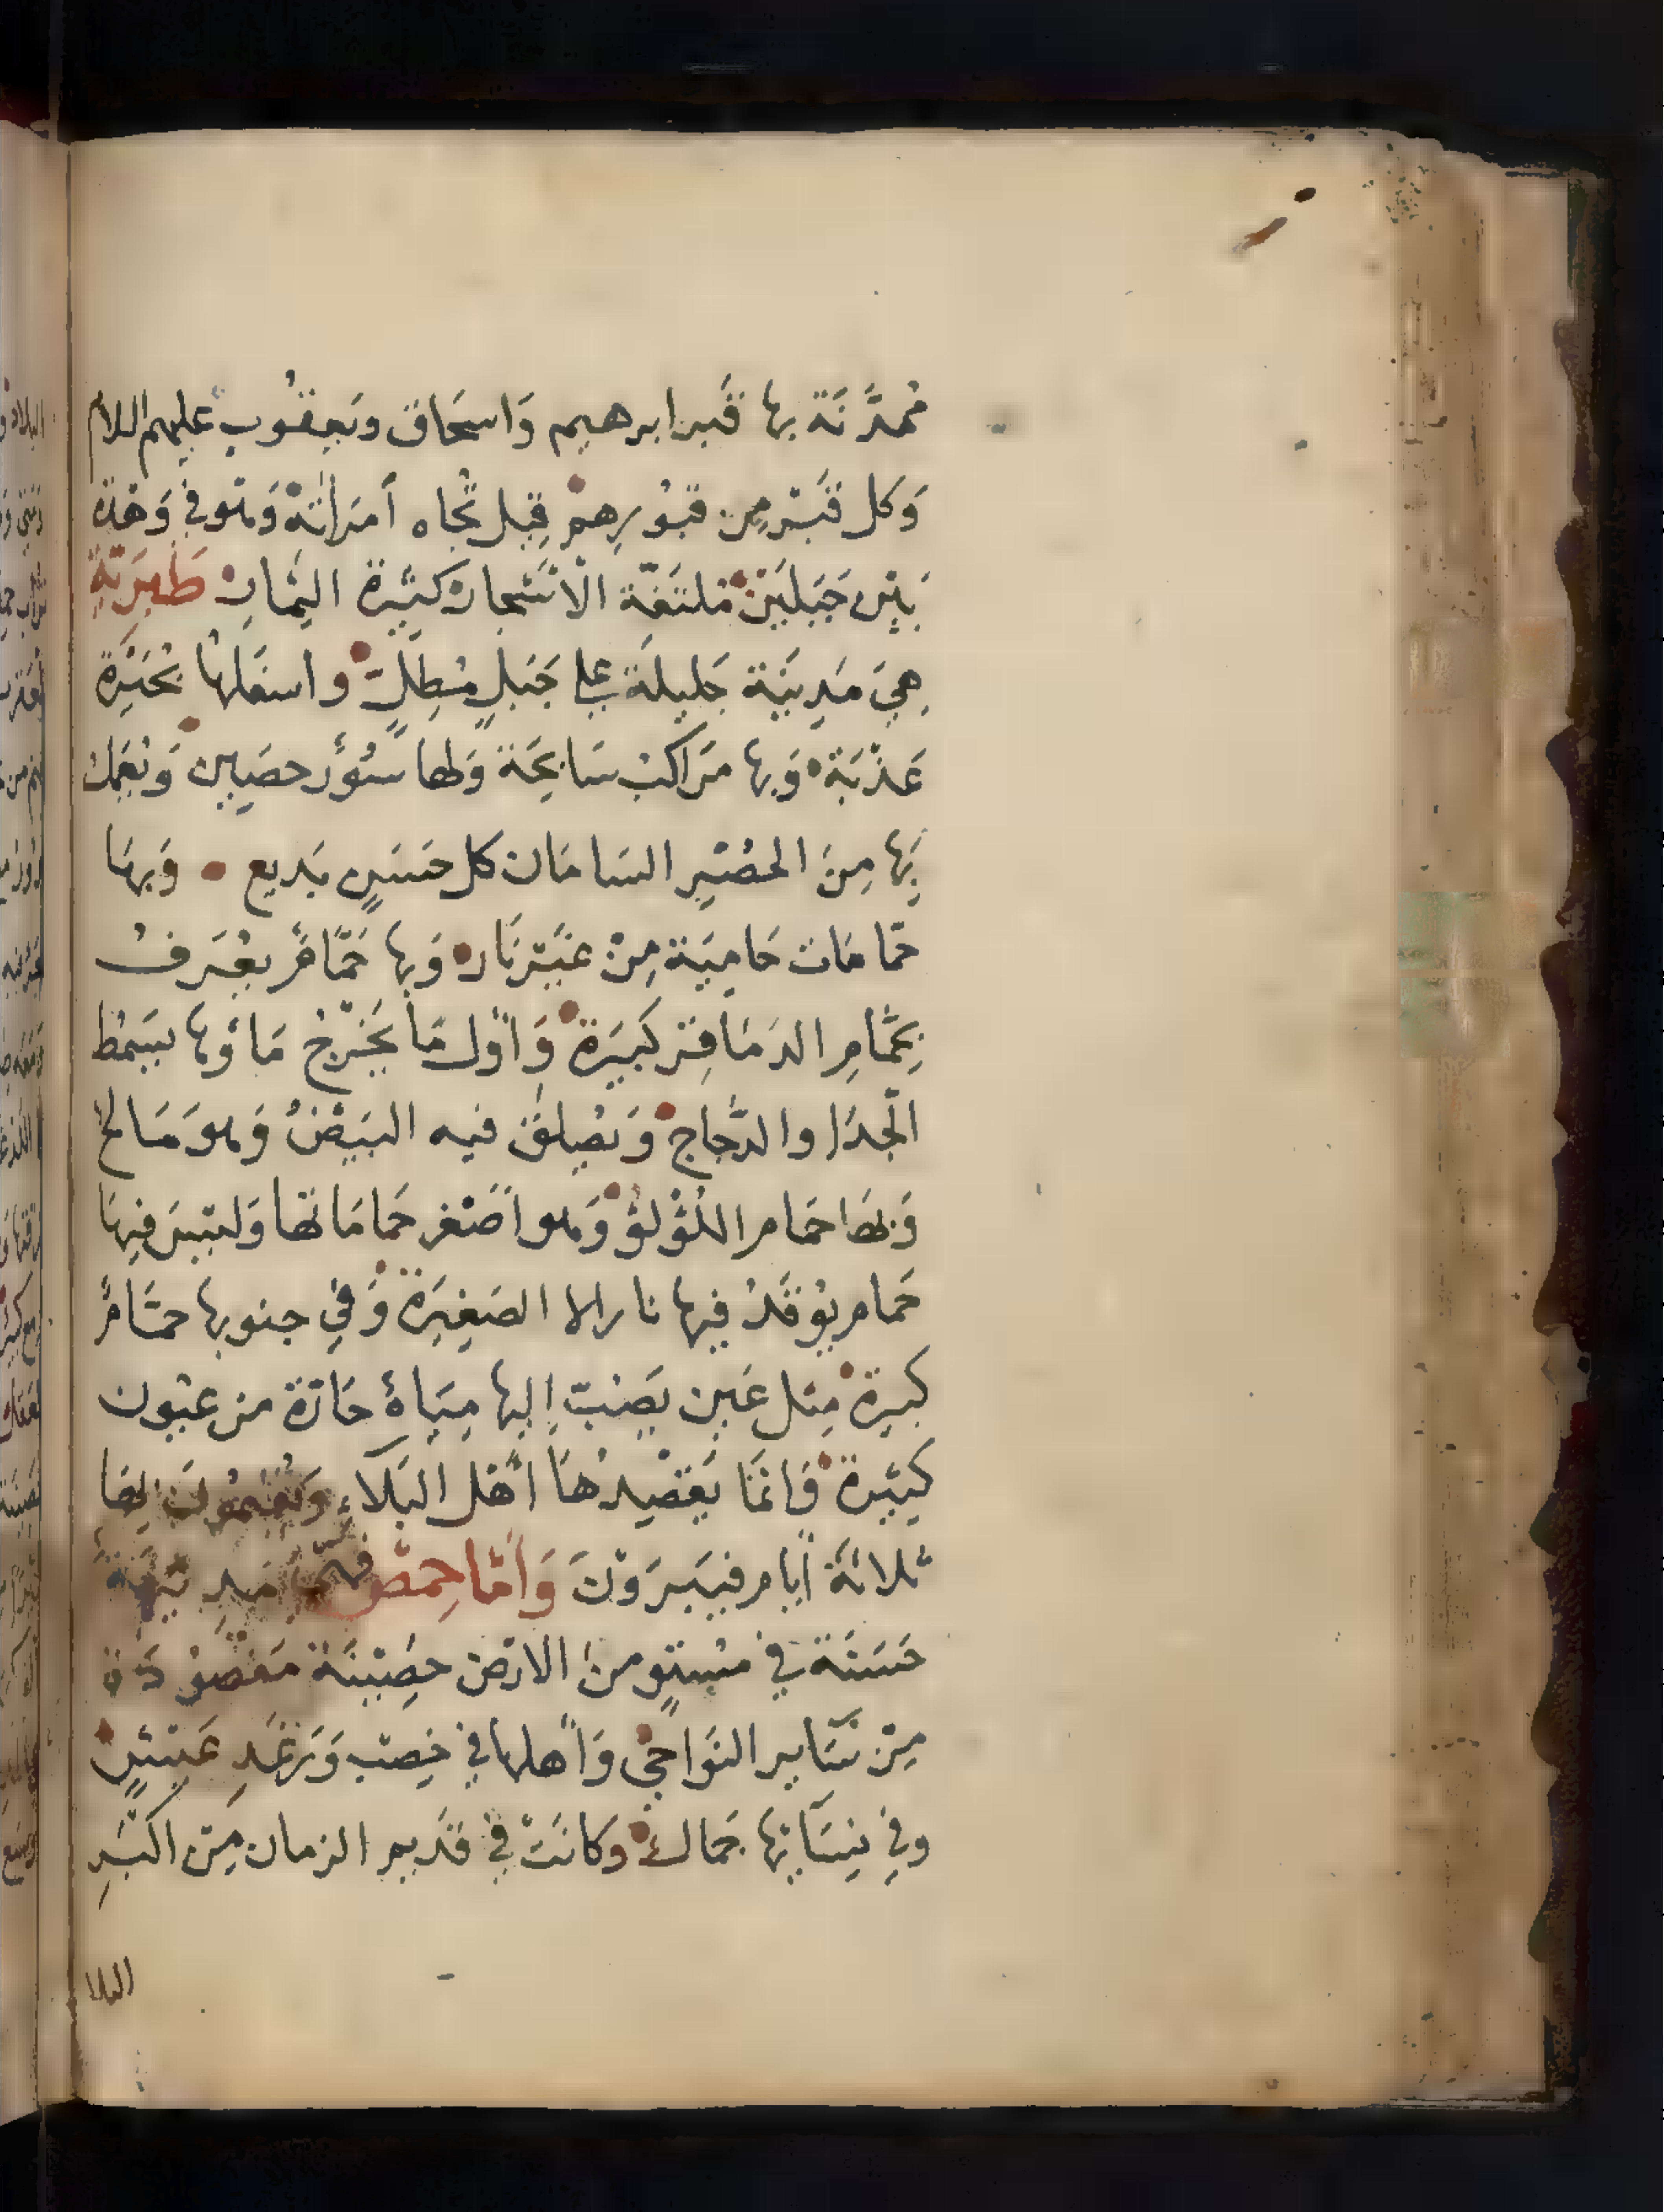 ممدَّنَة بها قَبر ابرهيم وَاسحَاق ويَعقُوب عليهم اللام
وَكل قَبْر مِن قبُورِهمْ قِبل تُجاه أمرَاتهْ وَهو في وَهْدَة
بَيْن جَبَلَيْن مُلتَفّة الأشجار كثيرة الثمار طَبَرِيّةِ
هيَ مَدِينَة جَليلَة على جَبَلٍ مُطِلٍّ واسفَلها بُحَيْرَة
عَذْبَة وَبها مَراكبُ سَابِحَة وَلها سُورٌ حصَين وَيُعمَل
بَها مِنَ الحصْرِ السَامَان كل حَسَنٍ بَديع وَبهَا
حمّامَات حَامِيَة مِنْ غَيْر نَار وَبها حَمّامٌ يعْرَفُ
بحَمّامِ الدمَاقِر كَبيَرَة وَأَوّل مَا يَخْرُجُ مَاؤها يَسمُط
الجدَا والدَّجاج وَيُصلَقُ فيه البَيْضُ وَهوَ مَالحٌ
وَبهَا حمَام اللُؤْلؤْ وَهو أصْغر حمَامَاتها وَليْسَ فيهَا
حَمام يُوقَدُ فيها نار الا الصَغيَرة وَفي جنوبها حمّامٌ
كبيرة مِثل عَين يَصَبّ إليها ميَاهٌ حَارّة من عيُون
كَثيرة وَانمَا يَقصِدُهَا أهْل البَلآء وَيُقيمُونَ بهَا
ثلاثَة أيام فيَبرَوْنَ وَأمّا حِمصْ فهىَ مَدِينَة
حَسَنَة في مُستوٍ منَ الارض حَصِينَة مَقصُودَة
مِنْ سَآير النوَاحي وَأهلها في خِصب وَرَغَدِ عَيشٍ
وفي نِسَآئها جَمالٌ وَكانَت في قَديم الزمان مِن اكبَرِ
البلا